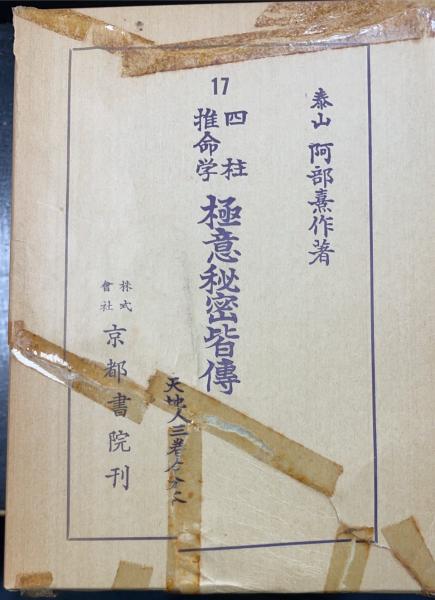 泰山 阿部熹作著
17
四柱
推命学
極意秘密皆傳
天地人三巻
株式
會社
京都書院刊